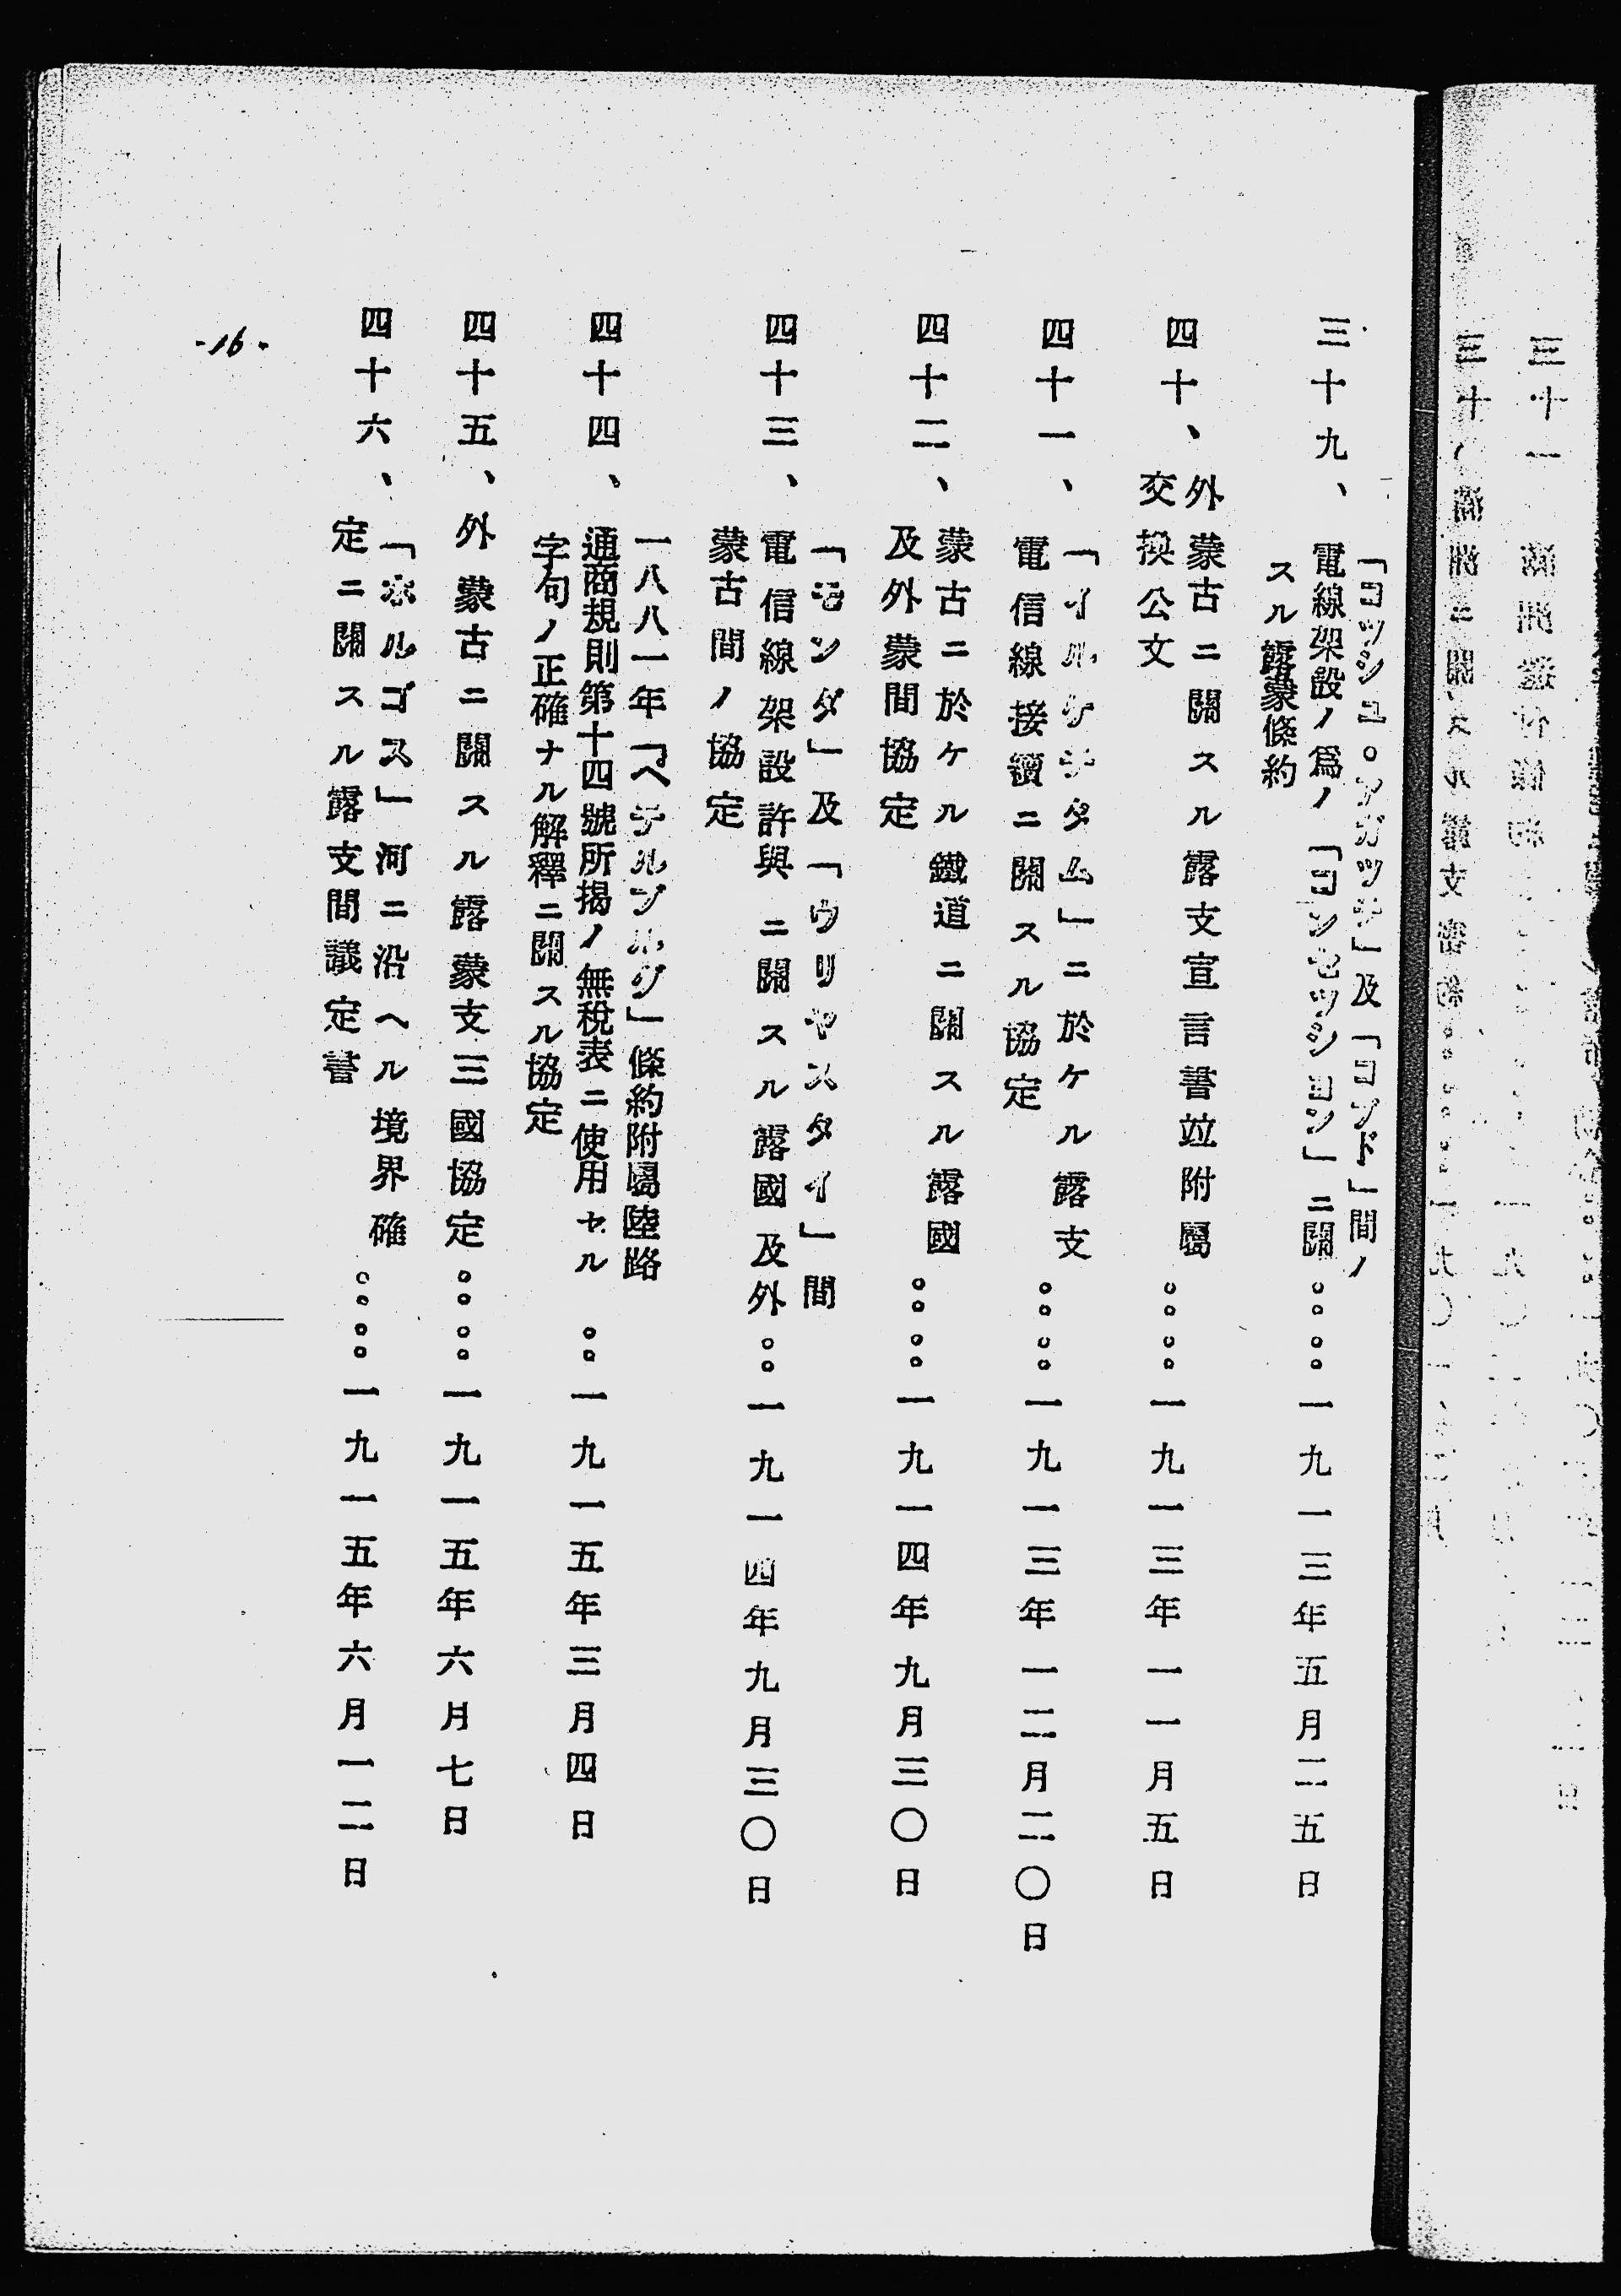 三十九、
「コッシュ。アガッチ」及「コブド」間ノ
電線架設ノ爲ノ「コンセッション」ニ關
スル露蒙條約
。。。。一九一三年五月二五日
四十、
外蒙古ニ關スル露支宣言書竝附屬
交換公文
。。。。一九一三年一一月五日
四十一、
「イルケシタム」ニ於ケル露支
電信線接續ニ關スル協定
。。。。一九一三年一二月二〇日
四十二、
蒙古ニ於ケル鐵道ニ關スル露國
及外蒙間協定
。。。。一九一四年九月三〇日
四十三、
「モンダ」及「ウリヤスタイ」間
電信線架設許與ニ關スル露國及外
蒙古間ノ協定
。。一九一四年九月三〇日
四十四、
一八八一年「ペテルブルグ」條約附屬陸路
通商規則第十四號所揭ノ無稅表ニ使用セル
字句ノ正確ナル解釋ニ關スル協定
。。一九一五年三月四日
四十五、
外蒙古ニ關スル露蒙支三國協定
。。。。一九一五年六月七日
四十六、
「ホルゴス」河ニ沿ヘル境界確
定ニ關スル露支間議定書
。。。。一九一五年六月一二日
-16-